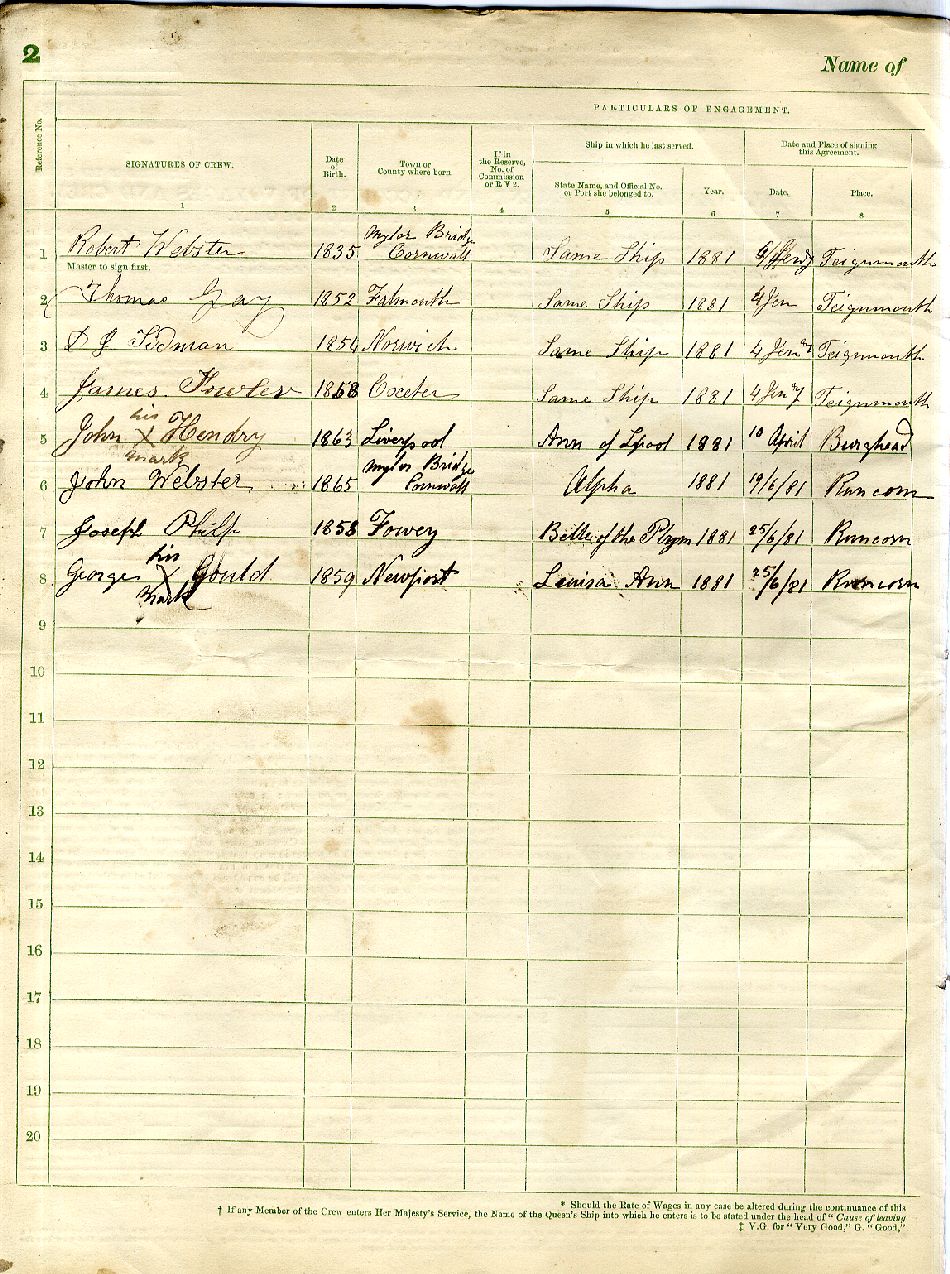 2
Name of
PARTICULARS OF ENGAGEMENT.
Reference No.
SIGNATURES OF CREW.
Date of Birth.
Town or County where born
If in the Reserve, No. of Commission or R V 2.
Ship in which he last served.
State Name, and Official No. or Port she belonged to.
Year.
Date and Place of signing this Agreement.
Date.
Place.
1 2 3 4 5 6 7 8
1 Robert Webster 1835 Mylor Bridge Cornwall Same Ship 1881 Teignmouth
Master to sign first.
2 Thomas Gay 1852 Falmouth Same Ship 1881 4 Jen Teignmouth
3 Tidman Norwich Same Ship 1881 4 Teignmouth
4 James Fowler Exeter Same Ship 1881 4 Teignmouth
5 John his X mark Hendry 1863 Liverpool Ann of Lpool 1881 10 April Burghead
6 John Webster 1865 Mylor Bridge Cornwall Alpha 1881 19/6/81 Runcorn
7 Joseph Philp 1858 Fowey Belle of the Plym 1881 25/6/81 Runcorn
8 George his X mark Gould 1859 Newport Louisa Ann 1881 25/6/81 Runcorn
9
10
11
12
13
14
15
16
17
18
19
20
* Should the Rate of Wages in any case be altered during the continuance of this
† If any Member of the Crew enters Her Majesty's Service, the Name of the Queen's Ship into which he enters is to be stated under the head of "Cause of leaving
‡ V.G. for "Very Good," G. "Good,"